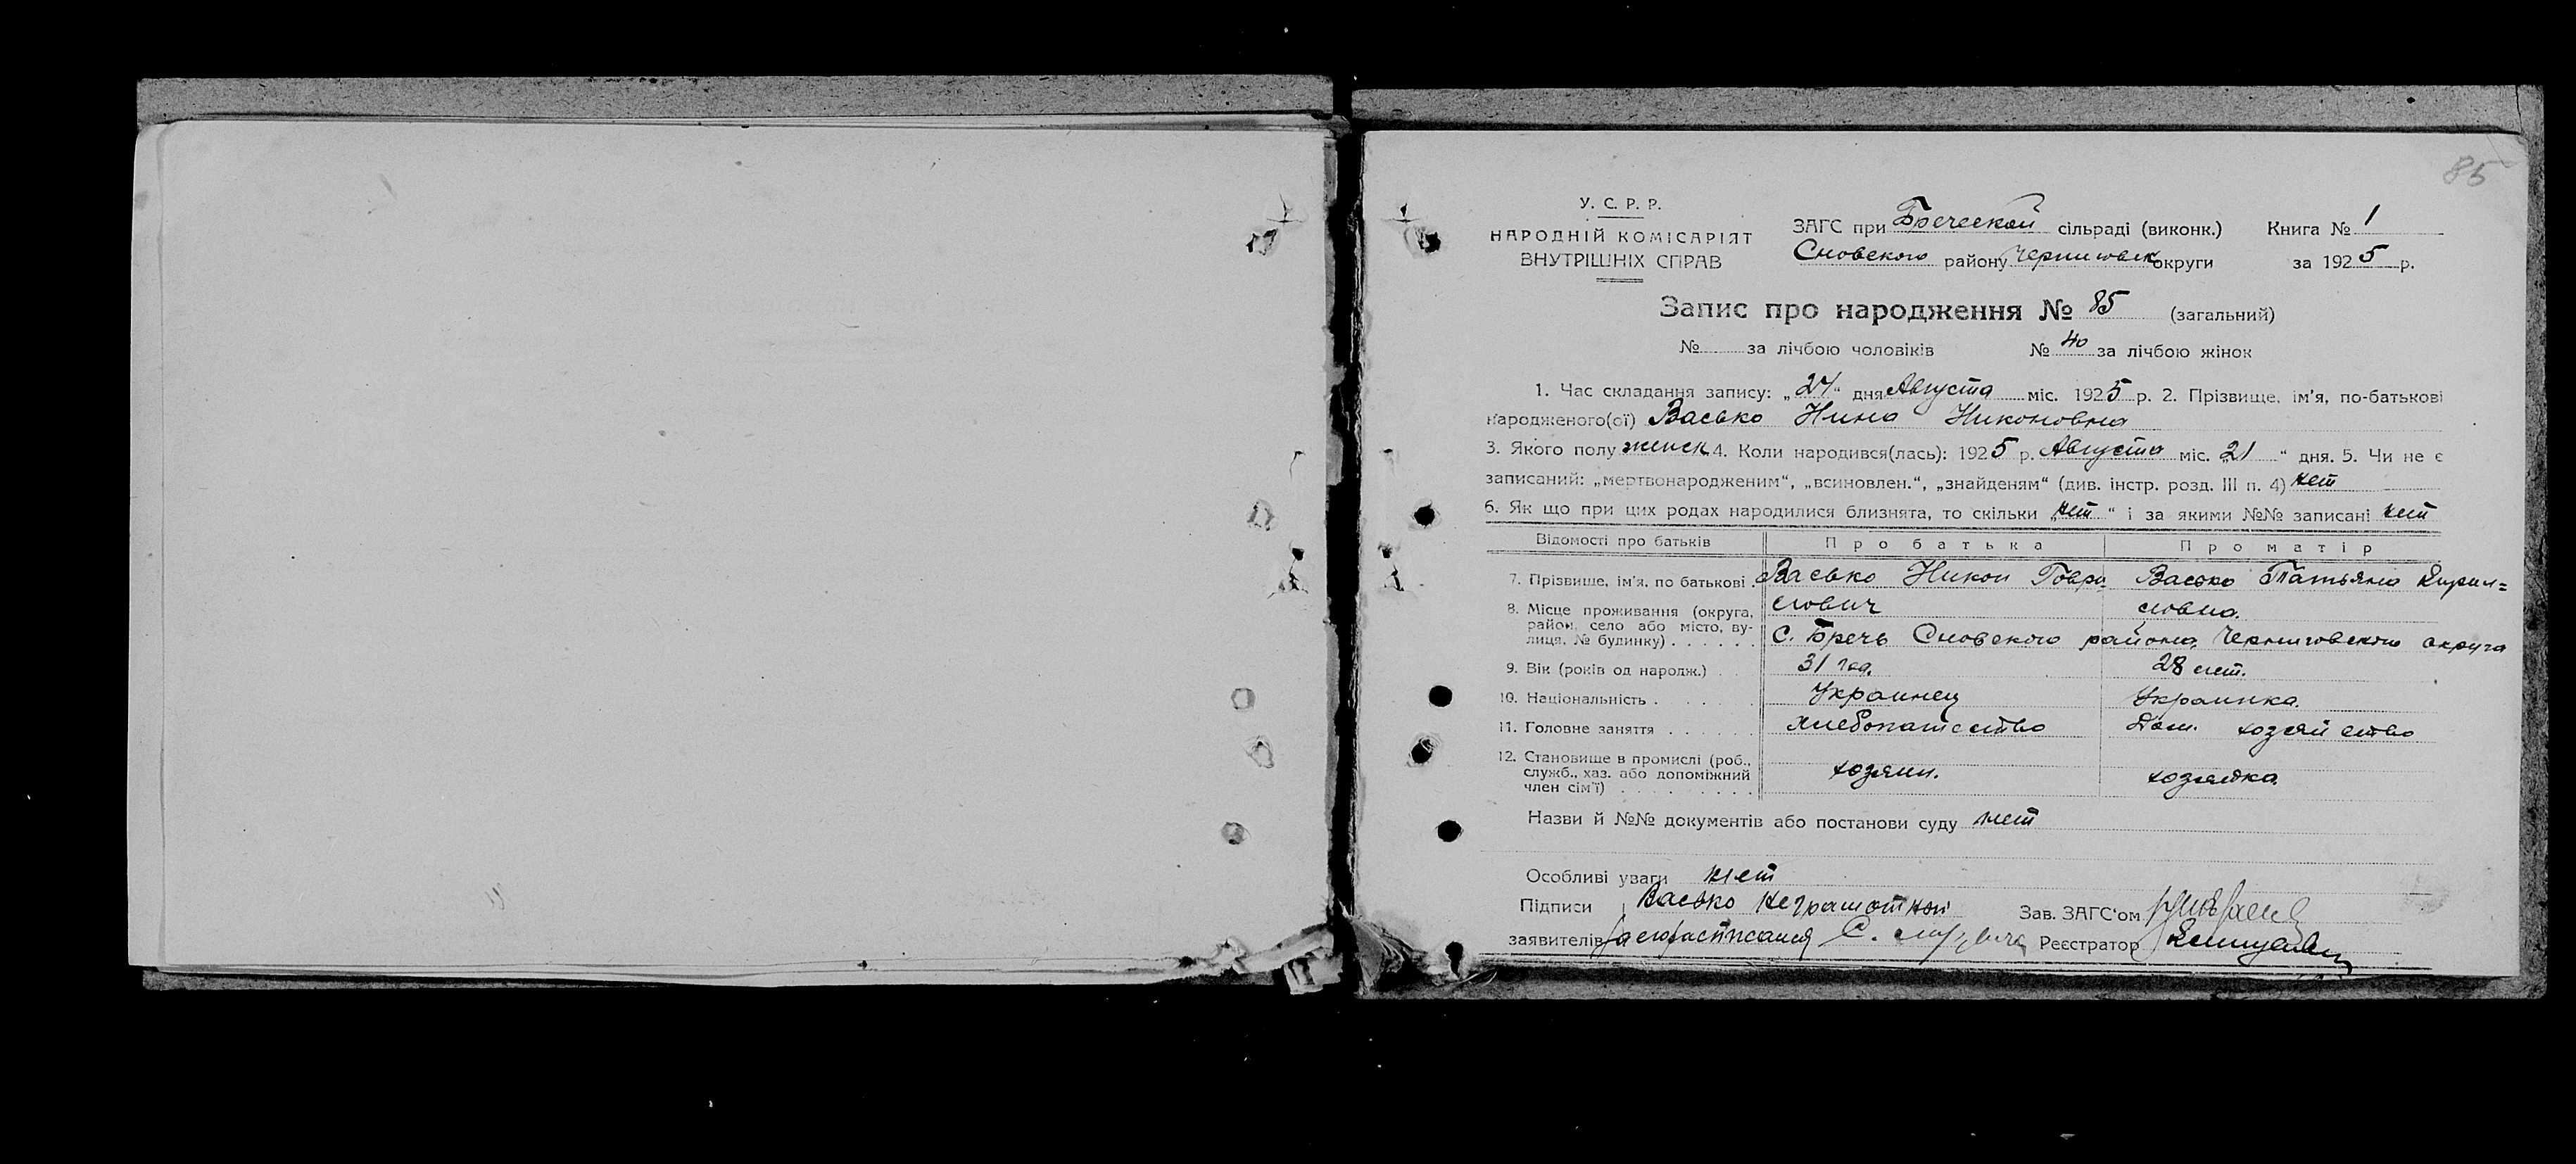 85
У. С. Р. Р.
НАРОДНІЙ КОМІСАРІЯТ
ВНУТРІШНІХ СПРАВ
ЗАГС при Бреческой сільраді (виконк.) Книга № 1
Сновского району Черниговск округи за 1925 р.
Запис про народження № 85 (загальний)
№ за лічбою чоловіків № 40 за лічбою жінок
1. Час складання запису: „24“ дня Августа міс. 1925 р. 2. Прізвище, ім'я, по-батькові
народженого(ої) Васько Нина Никоновна
3. Якого полу женск 4. Коли народився(лась): 1925 р. Августа міс. „21“ дня. 5. Чи не є
записаний: „мертвонародженим“, „всиновлен.“, „знайденям“ (див. інстр. розд. III п. 4) нет
6. Як що при цих родах народилися близнята, то скільки „нет“ і за якими №№ записані нет
Відомості про батьків Про батька Про матір
7. Прізвище, ім'я, по батькові . Васько Никон Гаври- Васько Татьяна Кирил=
лович ловна.
8. Місце проживання (округа,
район, село або місто, ву-
лиця, № будинку) . . . . . . С. Бречь Сновского района, Черниговского округа
9. Вік (років од народж.) . . 31 год. 28 лет.
10. Національність . . . . . Украинец Украинка.
11. Головне заняття . . . . . . хлебопашество Дом. хозяйство
12. Становище в промислі (роб.,
служб., хаз. або допоміжний
член сім'ї) . . . . . . . . . хозяин. хозяйка.
Назви й №№ документів або постанови суду нет
Особливі уваги нет
Підписи Васько неграмотной Зав. ЗАГС'ом
заявителів за его расписался С. Реєстратор